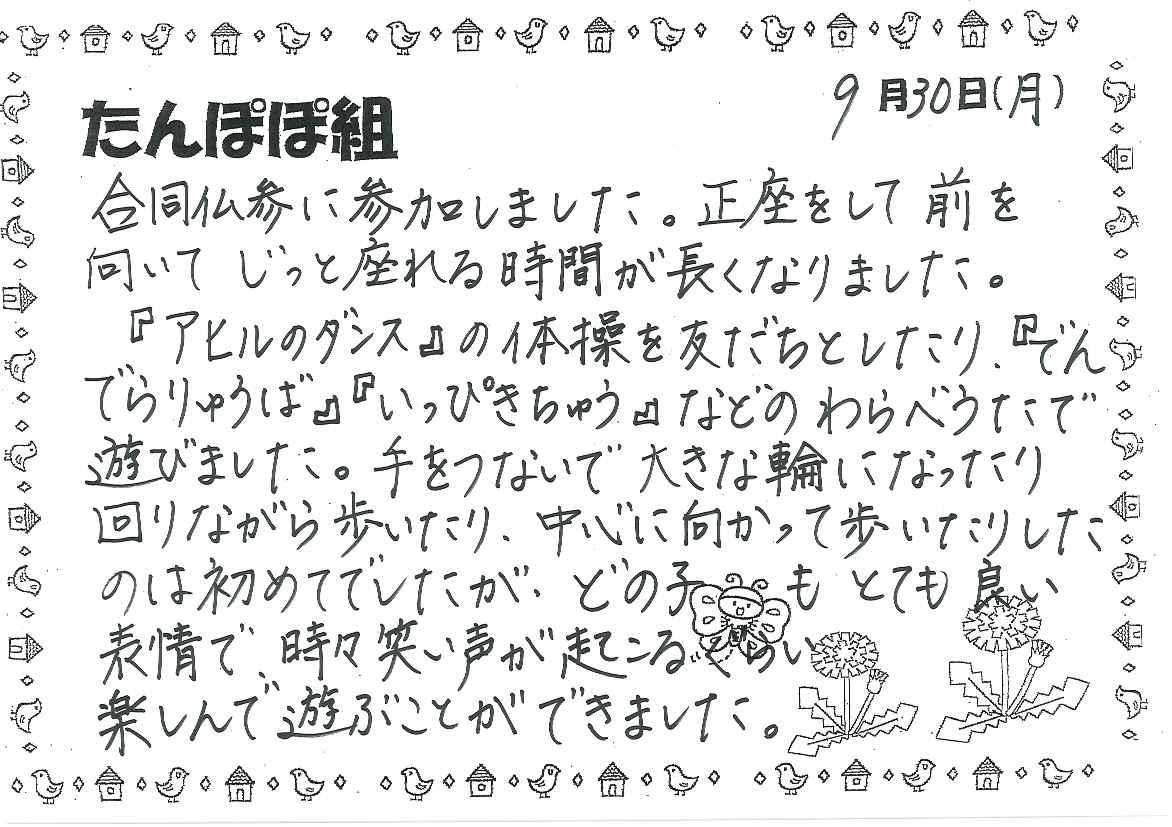 9月30日(月)
たんぽぽ組
合同仏参に参加しました。正座をして前を
向いてじっと座れる時間が長くなりました。
『アヒルのダンス』の体操を友だちとしたり、『でん
でらりゅうば』『いっぴきちゅう』などのわらべうたで
遊びました。手をつないで大きな輪になったり
回りながら歩いたり、中心に向かって歩いたりした
のは初めてでしたが、どの子もとても良い
表情で、時々笑い声が起こるくらい
楽しんで遊ぶことができました。